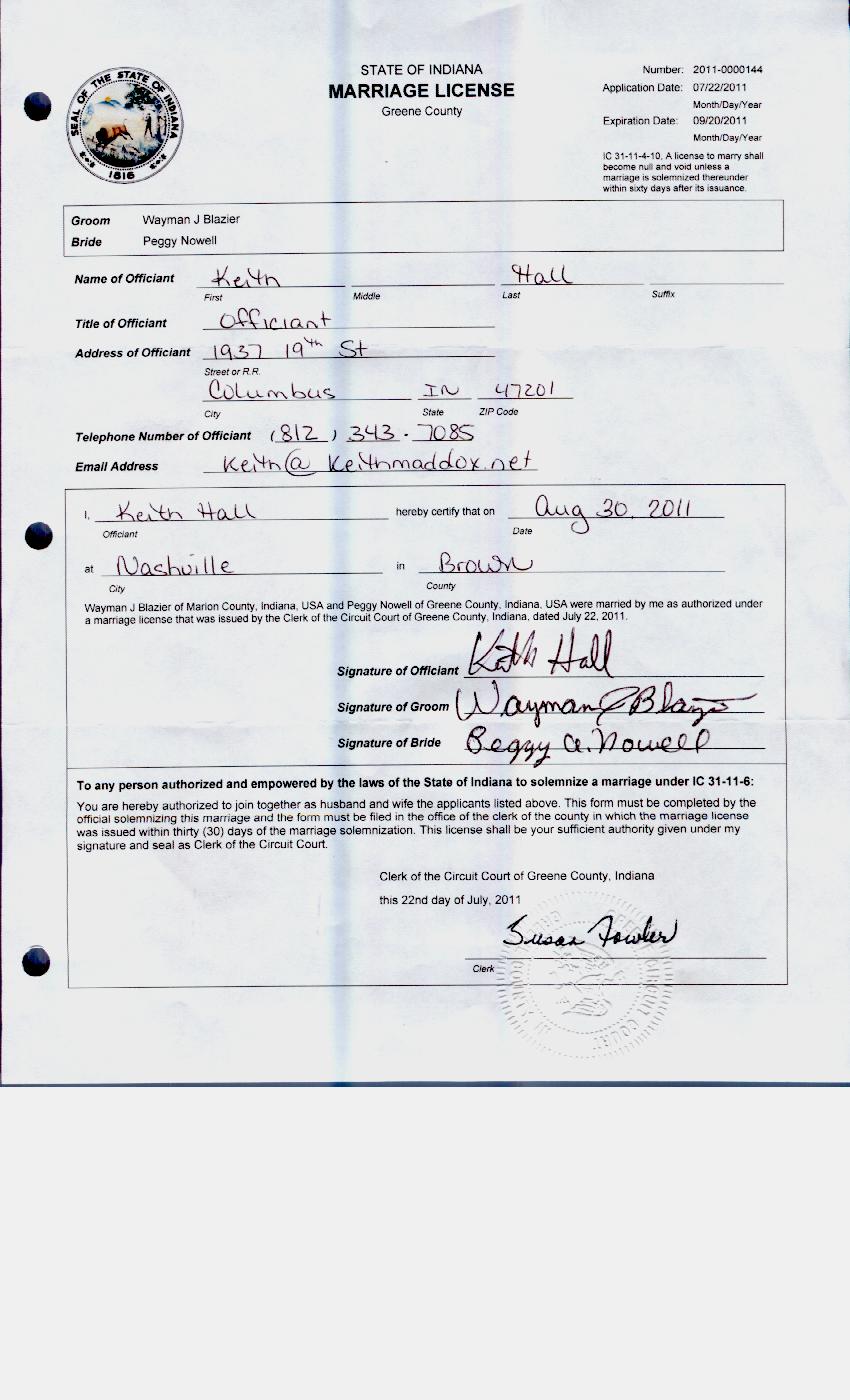 SEAL OF THE STATE OF INDIANA
1816
STATE OF INDIANA
MARRIAGE LICENSE
Greene County
Number: 2011-0000144
Application Date: 07/22/2011
Month/Day/Year
Expiration Date: 09/20/2011
Month/Day/Year
IC 31-11-4-10, A license to marry shall
become null and void unless a
marriage is solemnized thereunder
within sixty days after its issuance.
Groom Wayman J Blazier
Bride Peggy Nowell
Name of Officiant Keith Hall
First Middle Last Suffix
Title of Officiant Officiant
Address of Officiant 1937 19th St
Street or R.R.
Columbus IN 47201
City State ZIP Code
Telephone Number of Officiant (812) 343-7085
Email Address Keith@Keithmaddox.net
I, Keith Hall hereby certify that on Aug 30, 2011
Officiant Date
at Nashville in Brown
City County
Wayman J Blazier of Marion County, Indiana, USA and Peggy Nowell of Greene County, Indiana, USA were married by me as authorized under
a marriage license that was issued by the Clerk of the Circuit Court of Greene County, Indiana, dated July 22, 2011.
Signature of Officiant Keith Hall
Signature of Groom Wayman J Blazier
Signature of Bride Peggy A. Nowell
To any person authorized and empowered by the laws of the State of Indiana to solemnize a marriage under IC 31-11-6:
You are hereby authorized to join together as husband and wife the applicants listed above. This form must be completed by the
official solemnizing this marriage and the form must be filed in the office of the clerk of the county in which the marriage license
was issued within thirty (30) days of the marriage solemnization. This license shall be your sufficient authority given under my
signature and seal as Clerk of the Circuit Court.
Clerk of the Circuit Court of Greene County, Indiana
this 22nd day of July, 2011
Susan Fowler
Clerk
CIRCUIT COURT